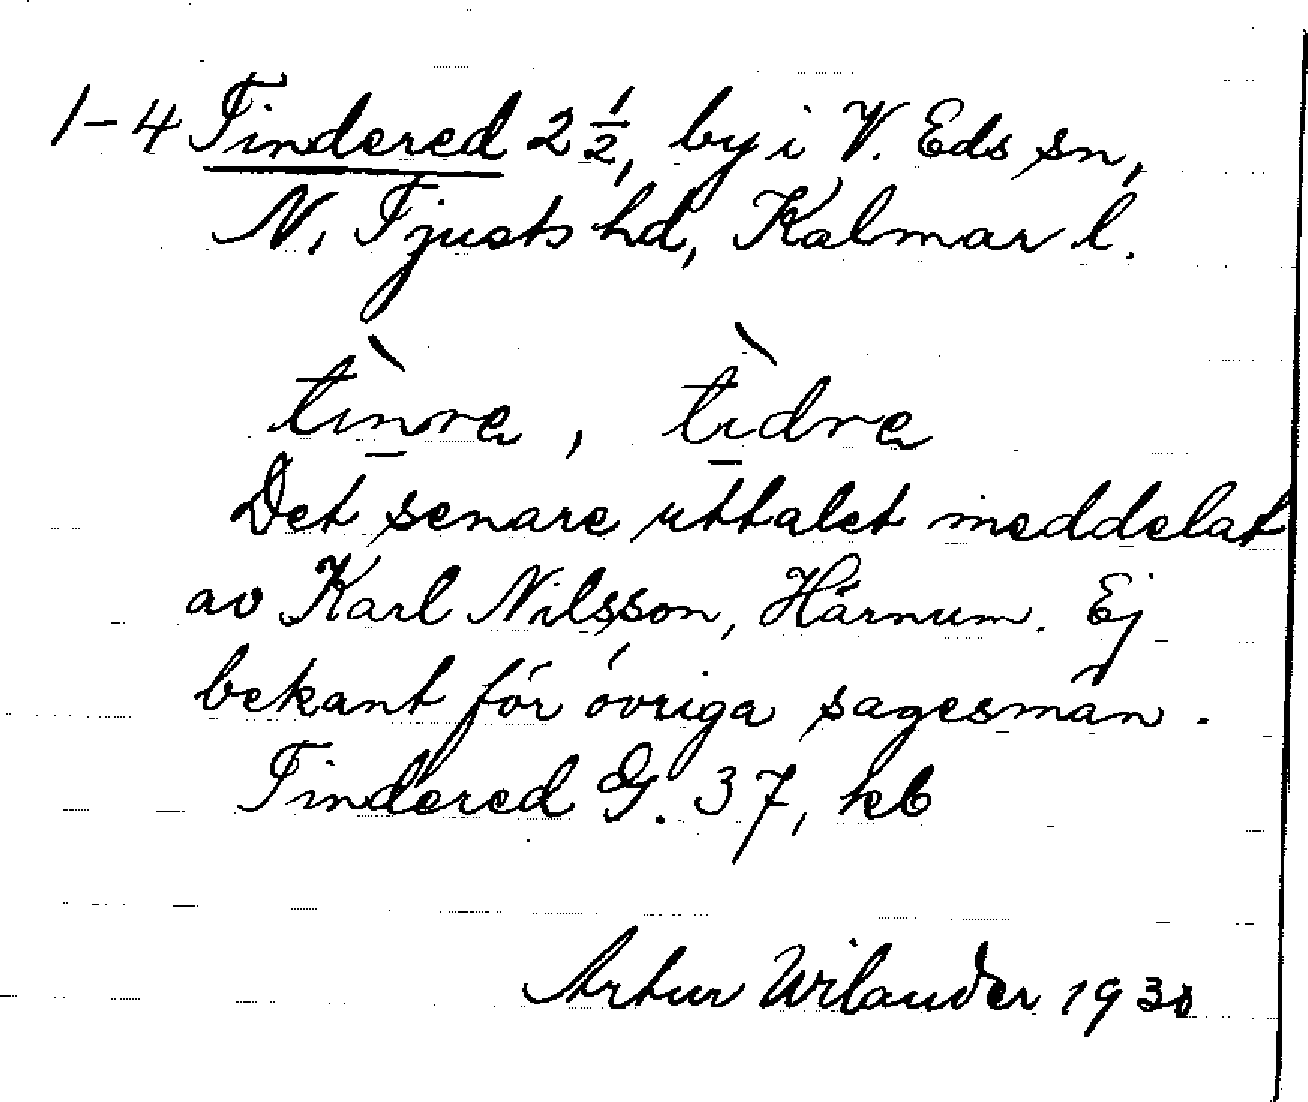 1-4 Tindered 2 ½, by i V. Eds sn,
N. Tjusts hd, Kalmar l.
tìnrɐ, tìdrɐ
Det senare uttalet meddelat
av Karl Nilsson, Härnum. Ej
bekant för övriga sagesmän.
Tindered G. 37, kb
Artur Wilander 1930